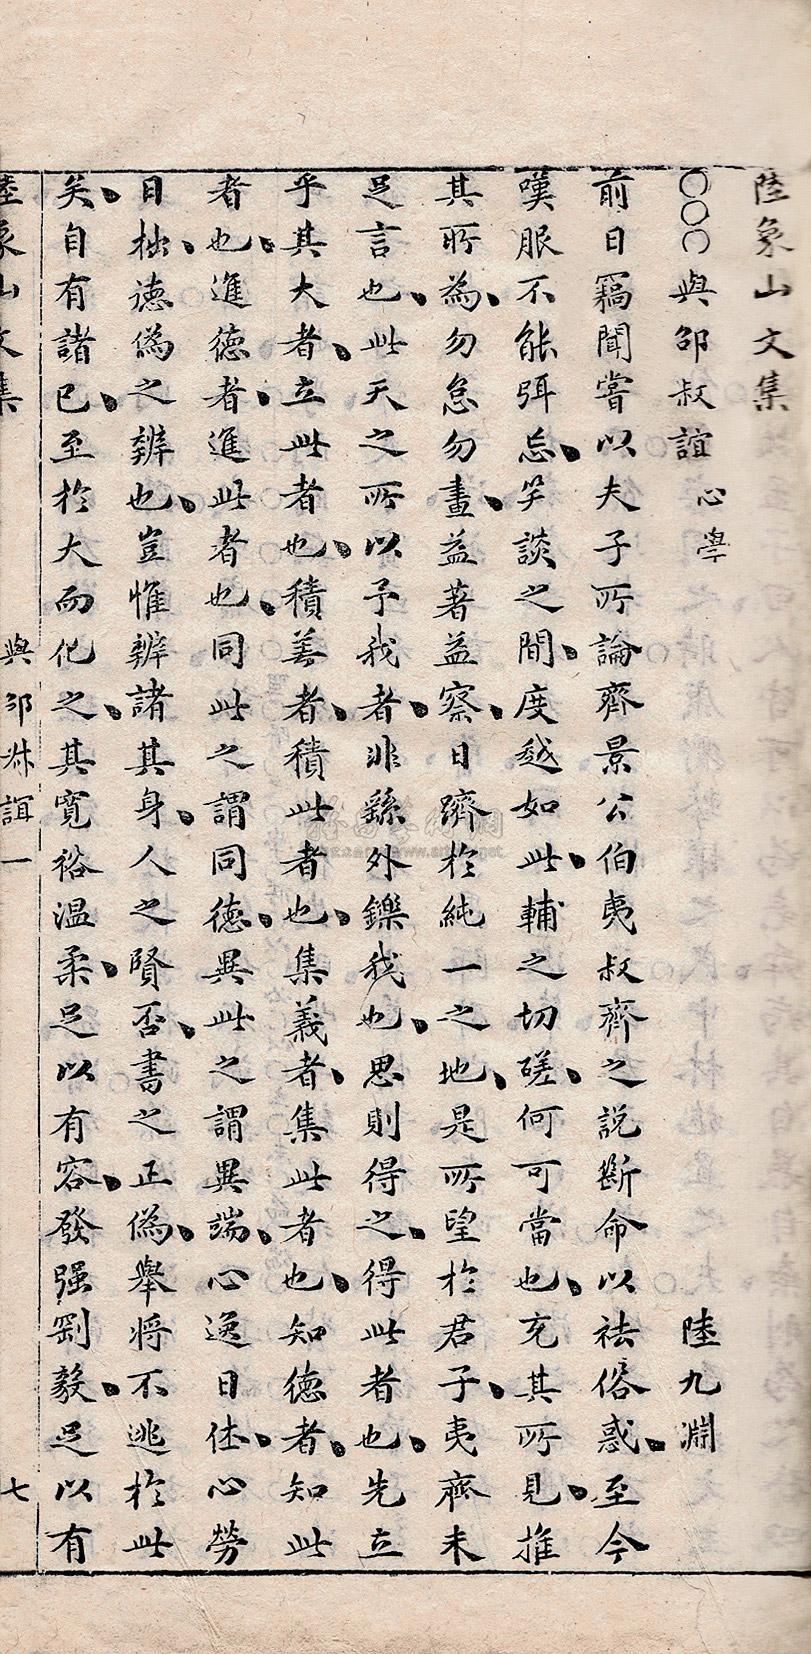 陸象山文集
〇〇〇與邵叔誼 心學 陸九淵
前日竊聞嘗以夫子所論齊景公伯夷叔齊之說斷命以祛俗惑、至今
嘆服不能弭忘、笑談之間、度越如此、輔之切磋、何可當也、充其所見、推
其所為、勿怠勿畫、益著益察、日躋於純一之地、是所望於君子、夷齊未
足言也、此天之所以予我者、非繇外鑠我也、思則得之、得此者也、先立
乎其大者、立此者也、積善者、積此者也、集義者、集此者也、知德者、知此
者也、進德者、進此者也、同此之謂同德、異此之謂異端、心逸日休、心勞
日拙、德偽之辨也、豈惟辨諸其身、人之賢否、書之正偽、舉將不逃於此
矣、自有諸已、至於大而化之、其寬裕溫柔、足以有容、發强剛毅、足以有
陸象山文集 與邵叔誼一 七